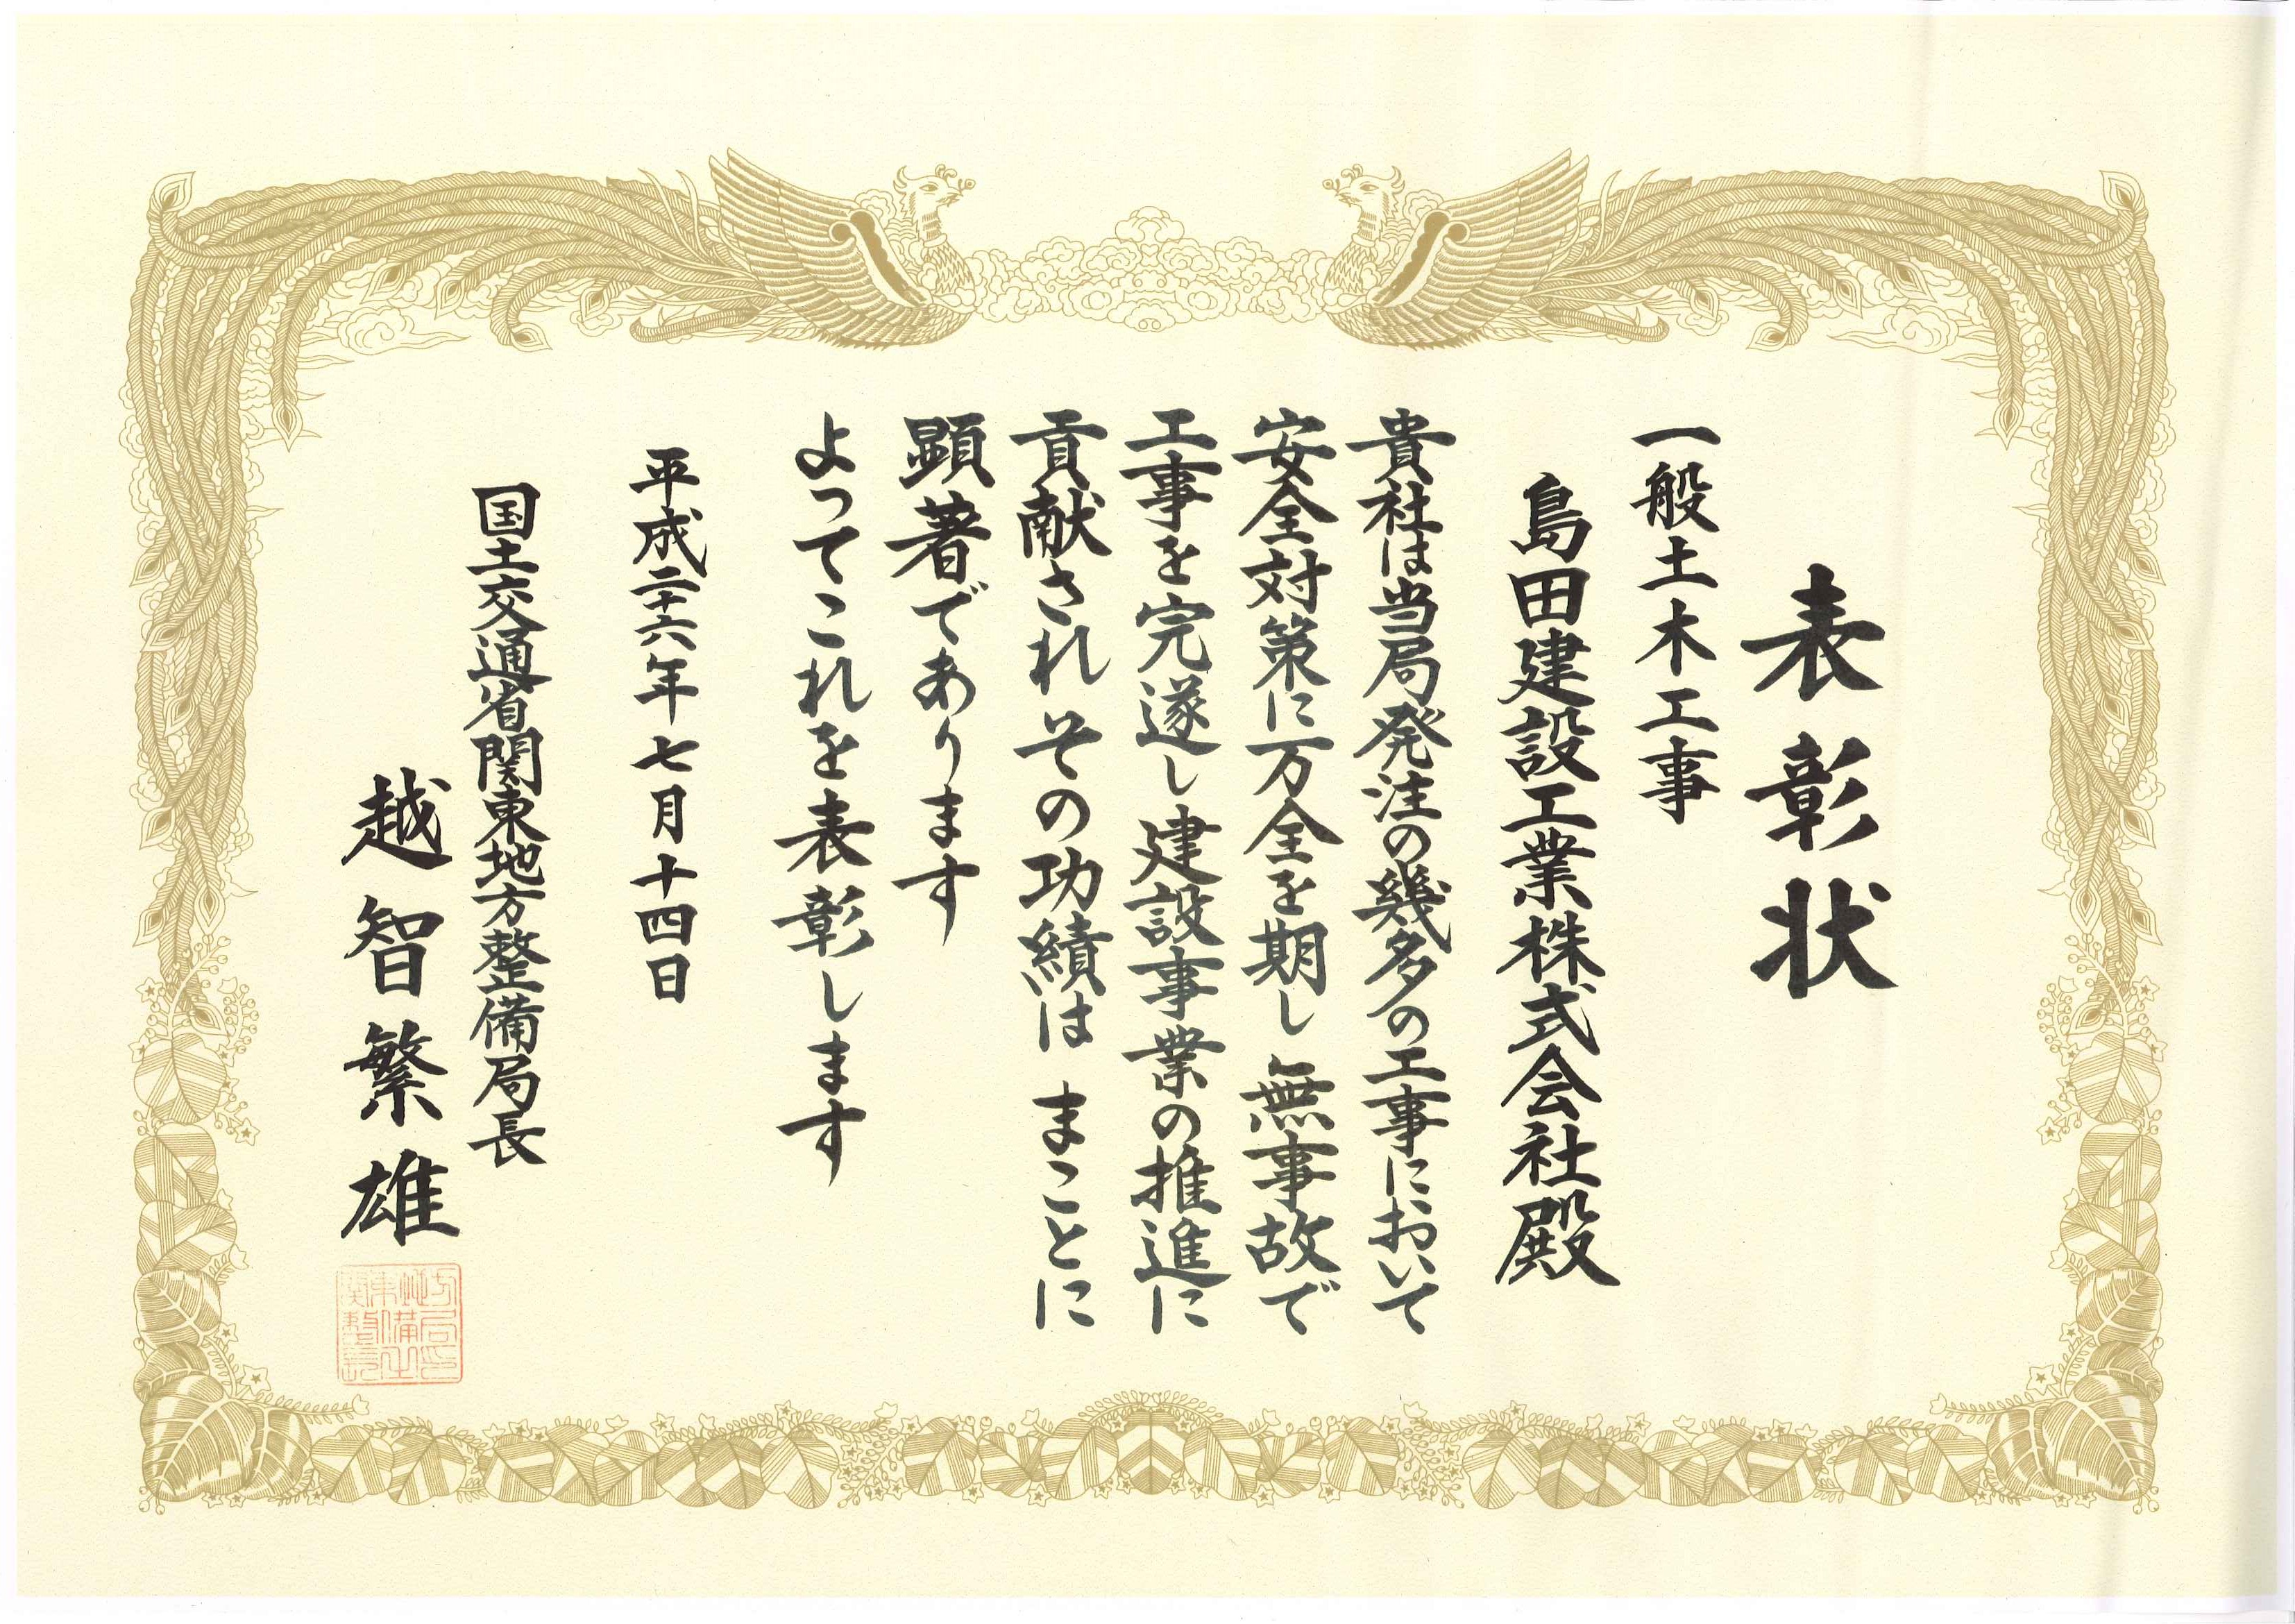 表彰状
一般土木工事
島田建設工業株式会社殿
貴社は当局発注の幾多の工事において
安全対策に万全を期し 無事故で
工事を完遂し 建設事業の推進に
貢献され その功績は まことに
顕著であります
よってこれを表彰します
平成二十六年七月十四日
国土交通省関東地方整備局長
越智繁雄